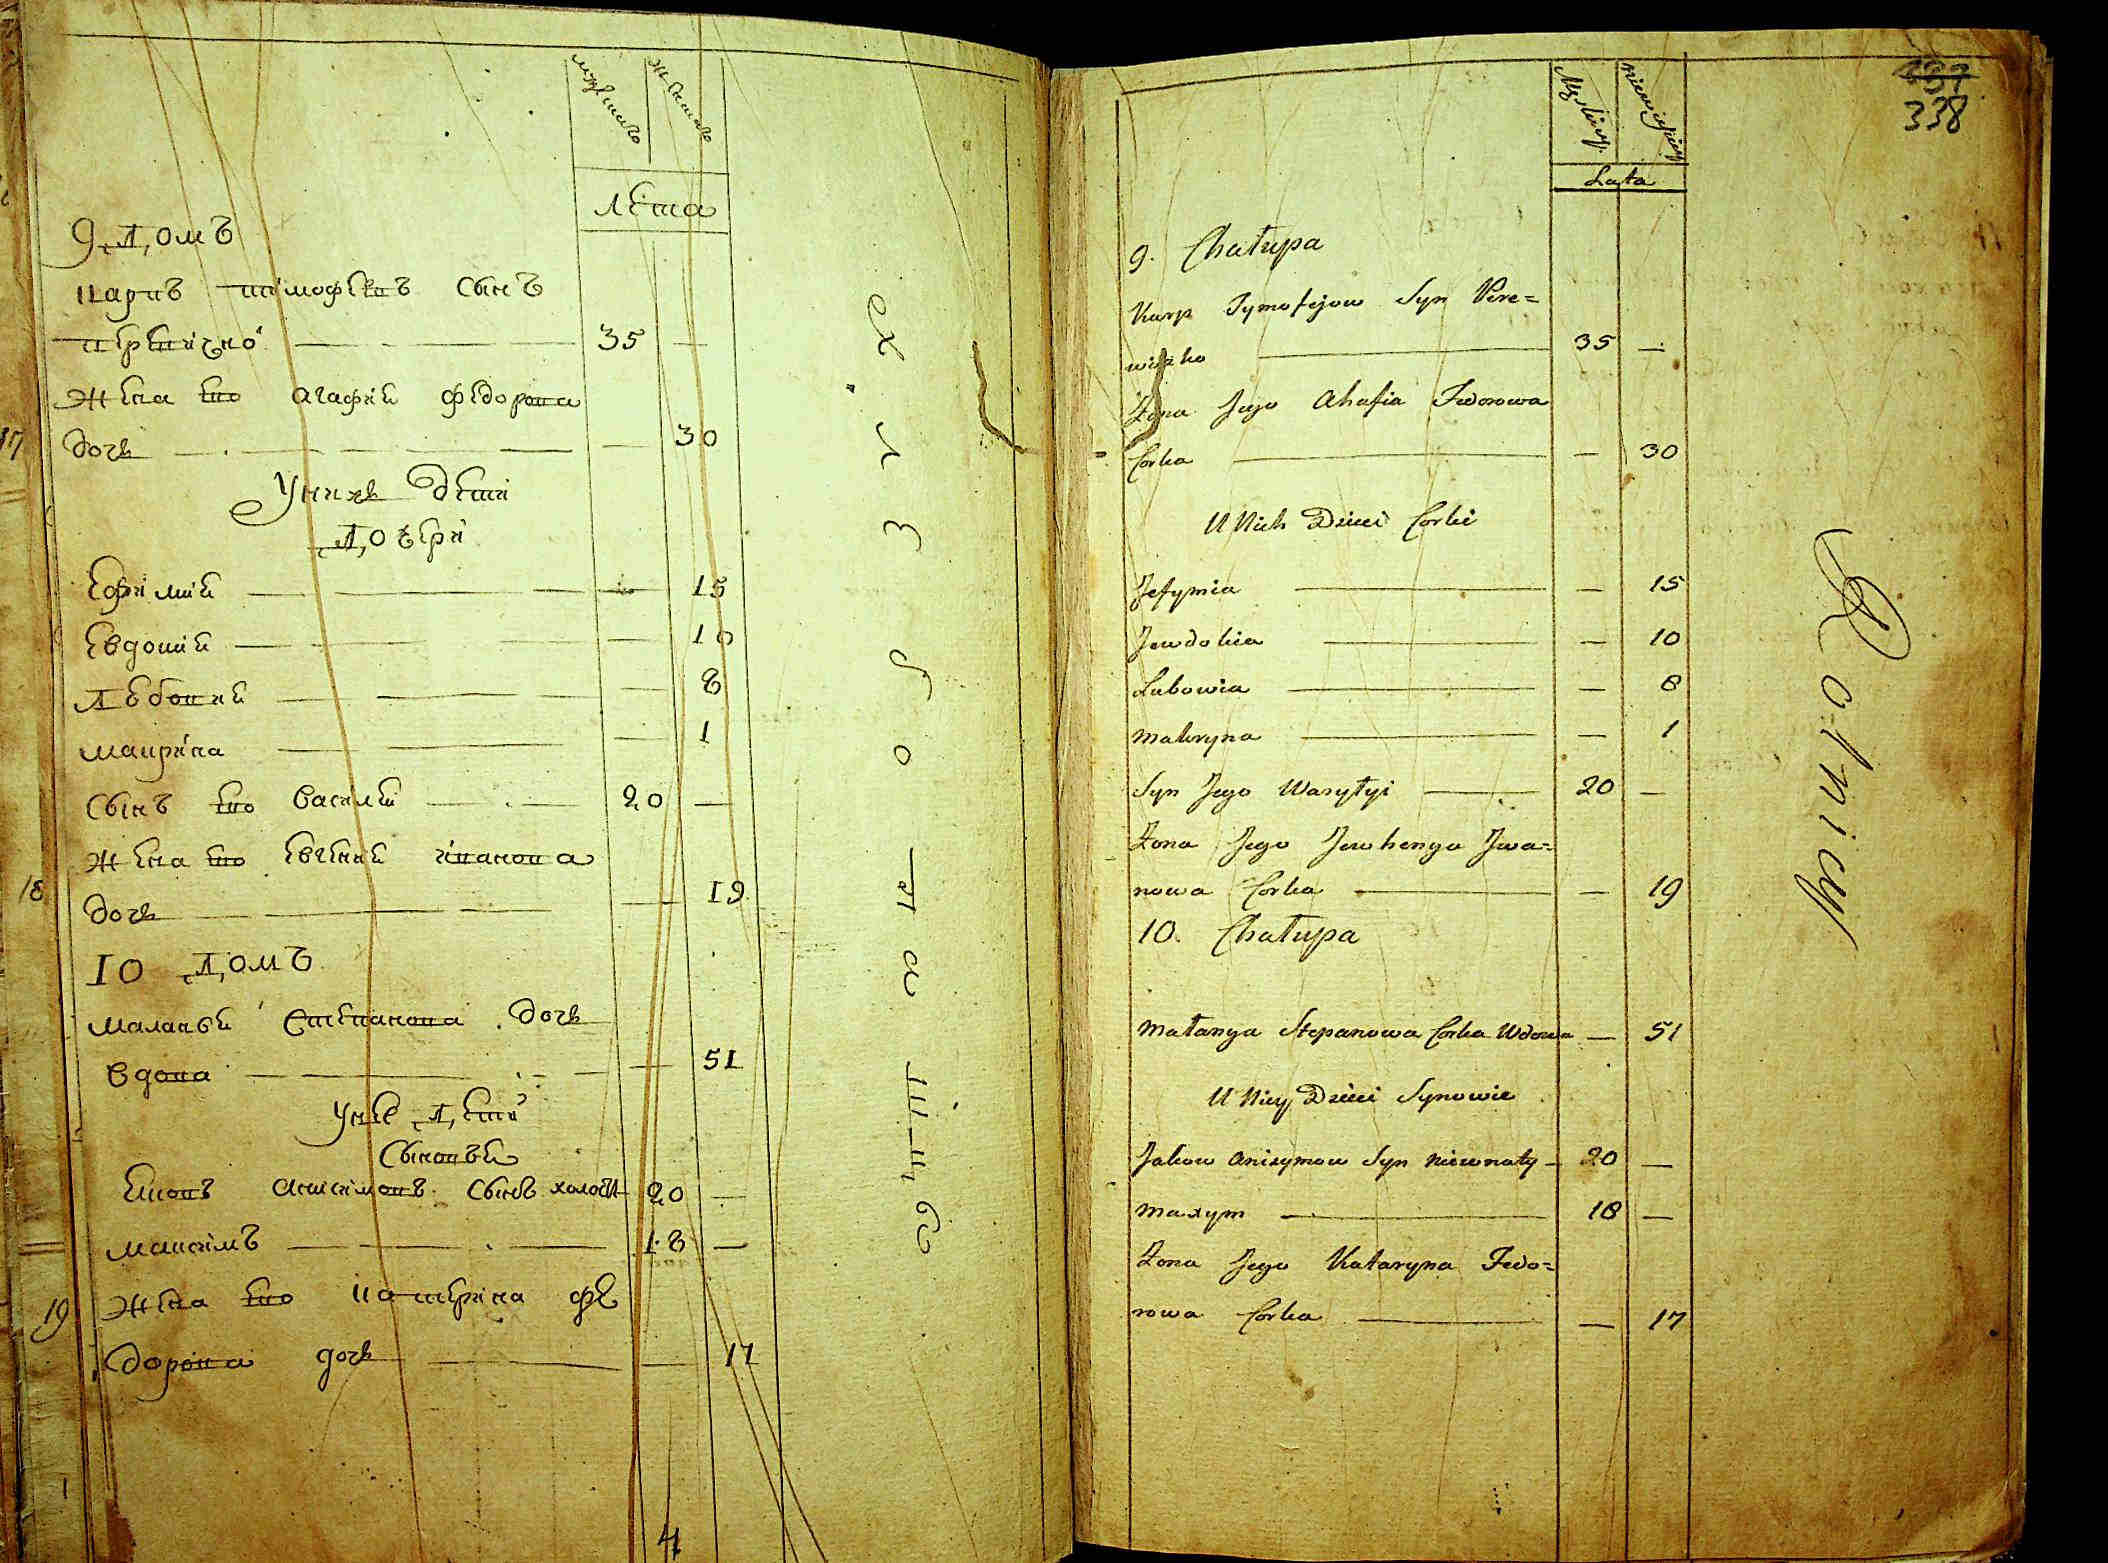 мужеска
женска
лета
9 Домъ
карпъ тимофеевъ сынъ
Жена его агафия федорова
35 —
дочь — 30
17
У нихъ дети
Дочери
ефимия — 15
евдокия — 10
Любовия — 8
маирина — 1
Сынъ его василий 20 —
Жена его евгения иванова
18
дочь — 19
10 Домъ
маланья Степанова дочь
вдова — 51
У нее Дети
Сыновья
Яковъ анисимовъ сынъ холостъ 20 —
максимъ 18 —
19
Жена его катерина фе
дорова дочь — 17
4
хлѣбопашцы
337
338
Męskiey
niewieskiey
Lata
9. Chałupa
Karp Tymofejow Syn Pere=
35 —
Żona Jego Ahafia Fedorowa
Corka — 30
U Nich Dzieci Corki
Jefymia — 15
Jewdokia — 10
Lubowia — 8
Makryna — 1
Syn Jego Wasyłyi 20 —
Żona Jego Jewhenya Iwa=
nowa Corka — 19
10. Chałupa
Małanya Stepanowa Corka Wdowa — 51
U Niey Dzieci Synowie
Jakow Anisymow Syn nieżonaty 20 —
Maxym 18 —
Żona Jego Kataryna Fedo=
rowa Corka — 17
Rolnicy